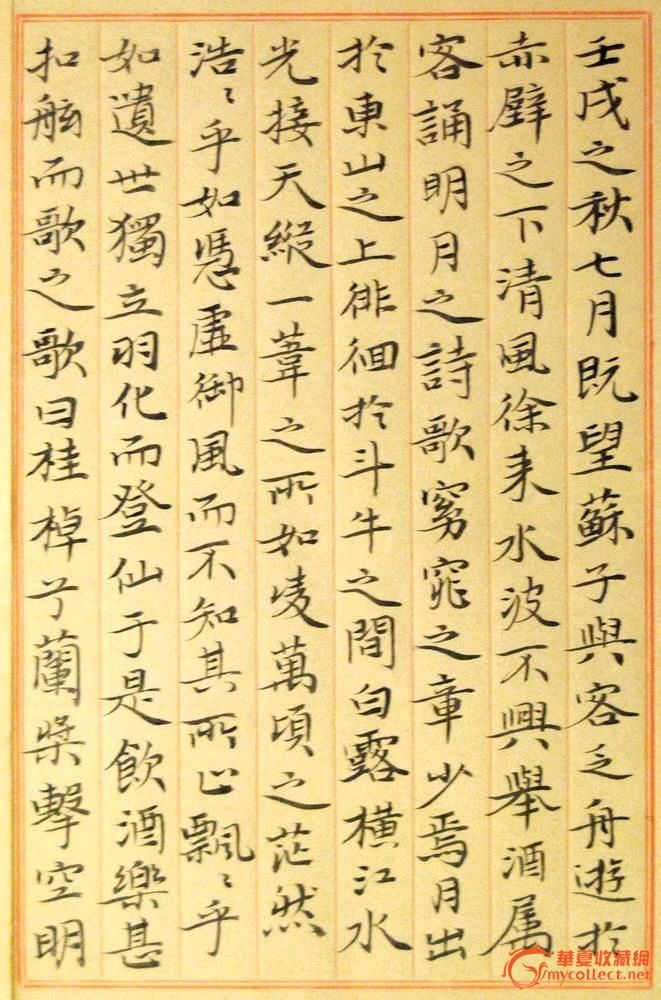 壬戌之秋七月既望蘇子與客乏舟遊扵
赤壁之下清風徐来水波不興舉酒属
客誦明月之詩歌窈窕之章少焉月出
扵東山之上徘徊扵斗牛之間白露橫江水
光接天縱一葦之所如凌萬頃之茫然
浩〻乎如憑虛御風而不知其所止飄〻乎
如遺世獨立羽化而登仙于是飲酒樂甚
扣舷而歌之歌曰桂棹兮蘭槳擊空明
華夏收藏網
mycollect.net